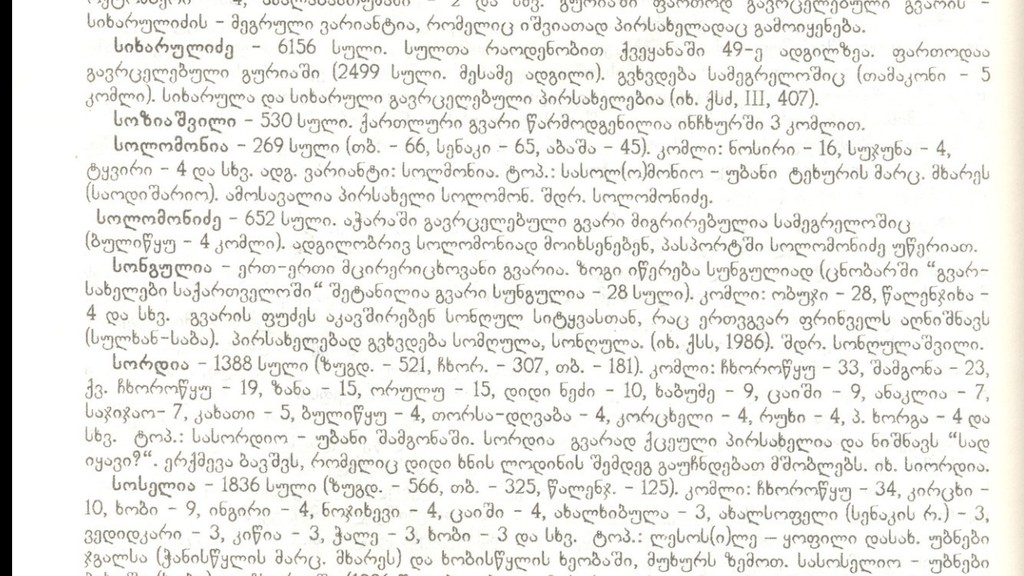 სიხარულიძის – მეგრული ვარიანტია, რომელიც იშვიათად პირსახელადაც გამოიყენება.
სიხარულიძე – 6156 სული. სულთა რაოდენობით ქვეყანაში 49-ე ადგილზეა. ფართოდაა
გავრცელებული გურიაში (2499 სული. მესამე ადგილი). გვხვდება სამეგრელოშიც (თამაკონი – 5
კომლი). სიხარულა და სიხარული გავრცელებული პირსახელებია (იხ. ქსძ, III, 407).
სოზიაშვილი – 530 სული. ქართლური გვარი წარმოდგენილია ინჩხურში 3 კომლით.
სოლომონია – 269 სული (თბ. – 66, სენაკი – 65, აბაშა – 45). კომლი: ნოსირი – 16, სუჯუნა – 4,
ტყვირი – 4 და სხვ. ადგ. ვარიანტი: სოლმონია. ტოპ.: სასოლ(ო)მონიო – უბანი ტეხურის მარც. მხარეს
(საოდიშარიო). ამოსავალია პირსახელი სოლომონ. შდრ. სოლომონიძე.
სოლომონიძე – 652 სული. აჭარაში გავრცელებული გვარი მიგრირებულია სამეგრელოშიც
(ბულიწყუ – 4 კომლი). ადგილობრივ სოლომონიად მოიხსენებენ, პასპორტში სოლომონიძე უწერიათ.
სონგულია – ერთ-ერთი მცირერიცხოვანი გვარია. ზოგი იწერება სუნგულიად (ცნობარში “გვარ–
სახელები საქართველოში“ შეტანილია გვარი სუნგულია – 28 სული). კომლი: ობუჯი – 28, წალენჯიხა –
4 და სხვ. გვარის ფუძეს აკავშირებენ სონღულ სიტყვასთან, რაც ერთვგვარ ფრინველს აღნიშნავს
(სულხან-საბა). პირსახელებად გვხვდება სომღულა, სონღულა. (იხ. ქსს, 1986). შდრ. სონღულაშვილი.
სორდია – 1388 სული (ზუგდ. – 521, ჩხორ. – 307, თბ. – 181). კომლი: ჩხოროწყუ – 33, შამგონა – 23,
ქვ. ჩხოროწყუ – 19, ზანა – 15, ორულუ – 15, დიდი ნეძი – 10, ხაბუმე – 9, ცაიში – 9, ანაკლია – 7,
საჯიჯაო– 7, კახათი – 5, ბულიწყუ – 4, თორსა-დღვაბა – 4, კორცხელი – 4, რუხი – 4, პ. ხორგა – 4 და
სხვ. ტოპ.: სასორდიო – უბანი შამგონაში. სორდია გვარად ქცეული პირსახელია და ნიშნავს “სად
იყავი?“. ერქმევა ბავშვს, რომელიც დიდი ხნის ლოდინის შემდეგ გაუჩნდებათ მშობლებს. იხ. სიორდია.
სოსელია – 1836 სული (ზუგდ. – 566, თბ. – 325, წალენჯ. – 125). კომლი: ჩხოროწყუ – 34, კირცხი –
10, ხობი – 9, ინგირი – 4, ნოჯიხევი – 4, ცაიში – 4, ახალხიბულა – 3, ახალსოფელი (სენაკის რ.) – 3,
ვედიდკარი – 3, კიწია – 3, ჭალე – 3, ხობი – 3 და სხვ. ტოპ.: ლესოს(ი)ლე — ყოფილი დასახ. უბნები
ჯგალსა (ჭანისწყლის მარც. მხარეს) და ხობისწყლის ხეობაში, მუხურს ზემოთ. სასოსელიო – უბნები